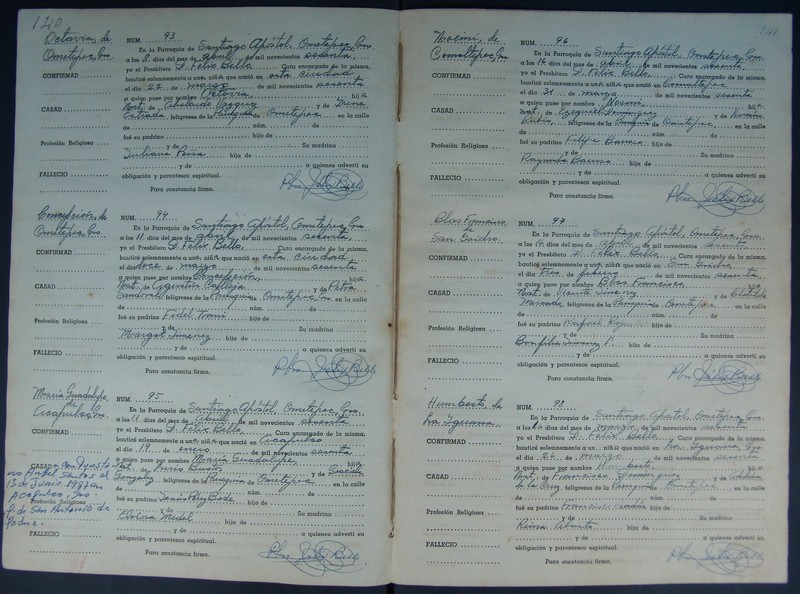 140
Octavia, de
Ometepec, Gro.
CONFIRMAD
CASAD
Profesión Religiosa
FALLECIO
NUM. 93
En la Parroquia de Santiago Apóstol, Ometepec, Gro.
a los 8 días del mes de abril de mil novecientos sesenta,
yo el Presbítero J. Félix Bello, Cura encargado de la misma,
bauticé solemnemente a un niñ que nació en esta ciudad
el día 22 de marzo de mil novecientos sesenta
a quien puse por nombre Octavia, hija
Irene
feligreses de la Parroquia Ometepec en la calle
de núm. de
fué su padrino hijo de
y de Su madrina
Juliana hija de
y de a quienes advertí su
obligación y parentesco espiritual.
Para constancia firmo. Pbro. Félix Bello
Concepción, de
Ometepec, Gro.
CONFIRMAD
CASAD
Profesión Religiosa
FALLECIO
NUM. 94
En la Parroquia de Santiago Apóstol, Ometepec, Gro.
a los 11 días del mes de abril de mil novecientos sesenta,
yo el Presbítero J. Félix Bello, Cura encargado de la misma,
bauticé solemnemente a un niñ que nació en esta ciudad
el día doce de marzo de mil novecientos sesenta
a quien puse por nombre Concepción, hija
Nat. de Agustín y de Petra
Sandoval feligreses de la Parroquia Ometepec, Gro. en la calle
de núm. de
fué su padrino Fidel hijo de
y de Su madrina
Margot Jimenez hija de
y de a quienes advertí su
obligación y parentesco espiritual.
Para constancia firmo. Pbro. Félix Bello
María Guadalupe,
de
Acapulco, Gro.
CONFIRMAD
CASAD
no Angel Santos el
13 de Junio 1987 en
Acapulco, Gro.
Profesión Religiosa
P. de San Antonio de
Padua.
FALLECIO
NUM. 95
En la Parroquia de Santiago Apóstol, Ometepec, Gro.
a los 11 días del mes de abril de mil novecientos sesenta,
yo el Presbítero J. Félix Bello, Cura encargado de la misma,
bauticé solemnemente a un niñ que nació en Acapulco
el día 19 de enero de mil novecientos sesenta
a quien puse por nombre María Guadalupe, hija
Nat. de Luis
González feligreses de la Parroquia Ometepec en la calle
de núm. de
fué su padrino hijo de
y de Su madrina
hija de
y de a quienes advertí su
obligación y parentesco espiritual.
Para constancia firmo. Pbro. Félix Bello
141
Noemí, de
Comaltepec, Gro.
CONFIRMAD
CASAD
Profesión Religiosa
FALLECIO
NUM. 96
En la Parroquia de Santiago Apóstol, Ometepec, Gro.
a los 14 días del mes de abril de mil novecientos sesenta,
yo el Presbítero J. Félix Bello, Cura encargado de la misma,
bauticé solemnemente a un niñ que nació en Comaltepec
el día 31 de marzo de mil novecientos sesenta
a quien puse por nombre Noemí, hija
Nat. de Ezequiel Domínguez y de
feligreses de la Parroquia Ometepec, en la calle
de núm. de
fué su padrino Felipe hijo de
y de Su madrina
hija de
y de a quienes advertí su
obligación y parentesco espiritual.
Para constancia firmo. Pbro. Félix Bello
Blas Francisco,
de
San Isidro.
CONFIRMAD
CASAD
Profesión Religiosa
FALLECIO
NUM. 97
En la Parroquia de Santiago Apóstol, Ometepec, Gro.
a los 16 días del mes de abril de mil novecientos sesenta,
yo el Presbítero J. Félix Bello, Cura encargado de la misma,
bauticé solemnemente a un niñ que nació en San Isidro
el día tres de febrero de mil novecientos sesenta,
a quien puse por nombre Blas Francisco, hijo
Nat. de Vicente Jimenez y de Clotilde
feligreses de la Parroquia de Ometepec en la calle
de núm. de
fué su padrino hijo de
y de Su madrina
Bonfilia hija de
y de a quienes advertí su
obligación y parentesco espiritual.
Para constancia firmo. Pbro. Félix Bello
Humberto de
La Iguana
CONFIRMAD
CASAD
Profesión Religiosa
FALLECIO
NUM. 98
En la Parroquia de Santiago Apóstol, Ometepec, Gro.
a los días del mes de de mil novecientos sesenta,
yo el Presbítero J. Félix Bello, Cura encargado de la misma,
bauticé solemnemente a un niñ que nació en La Iguana
el día 26 de marzo de mil novecientos sesenta
a quien puse por nombre Humberto, hijo
Nat. de Francisco
de la Cruz feligreses de la Parroquia Ometepec en la calle
de núm. de
fué su padrino Francisco hijo de
y de Su madrina
hija de
y de a quienes advertí su
obligación y parentesco espiritual.
Para constancia firmo. Pbro. Félix Bello